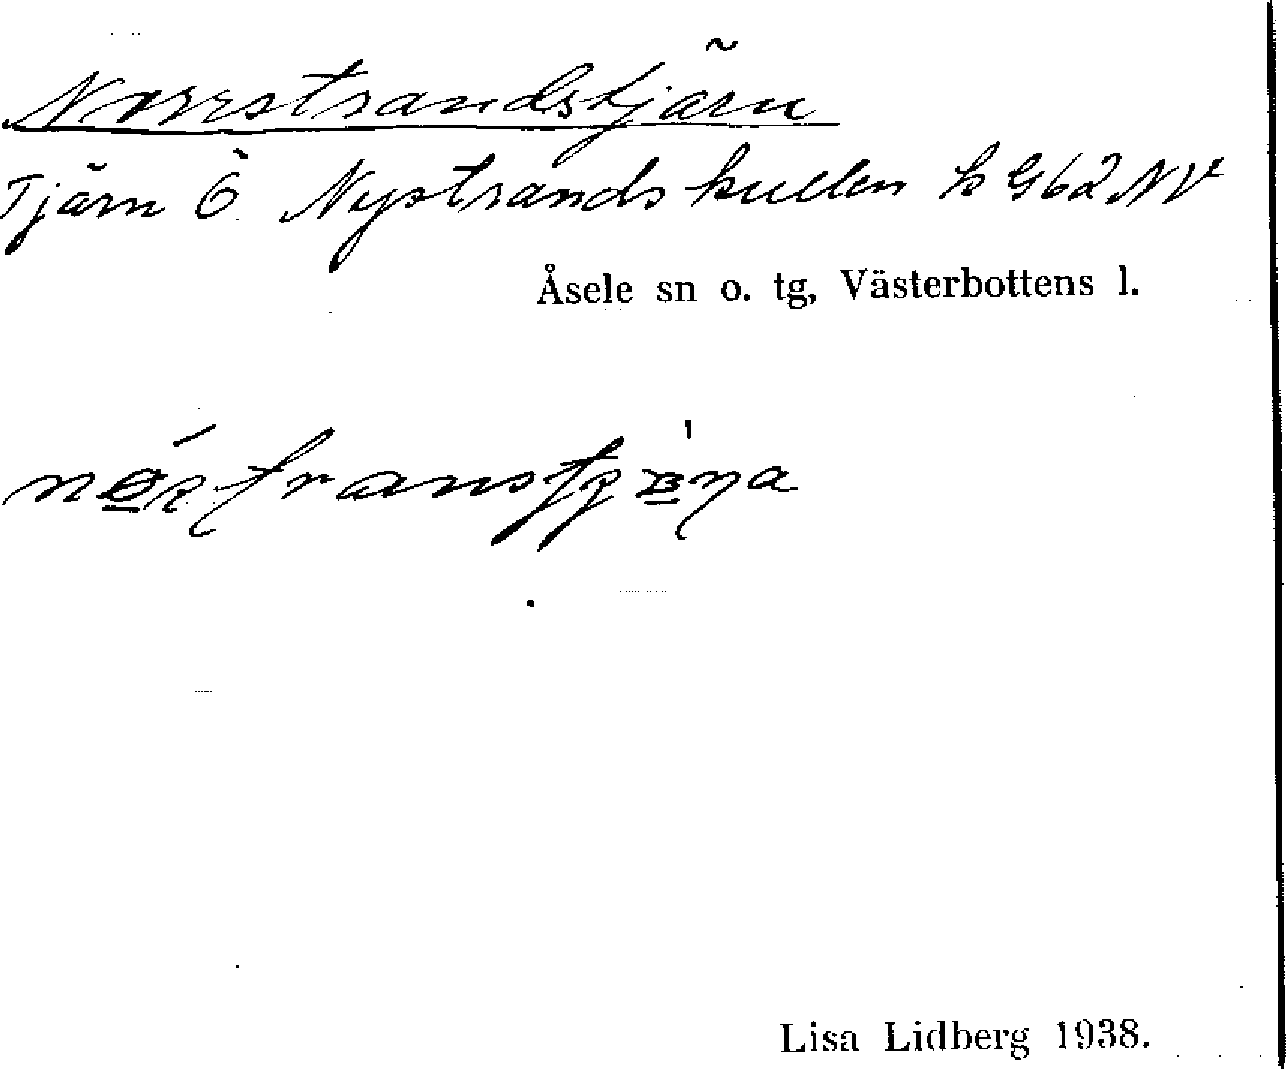 Norrstrandstjärn
Tjärn Ö Nystrandskullen k G62NV
Åsele sn o. tg, Västerbottens l.
Lisa Lidberg 1938.